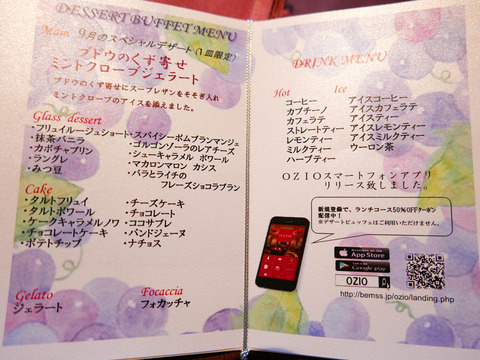 DESSERT BUFFET MENU
Main 9月のスペシャルデザート(1皿限定)
ブドウのくず寄せ
ミントクローブジェラート
ブドウのくず寄せにスープレザンをそそぎ入れ
ミントクローブのアイスを添えました。
Glass dessert
・フリュイルージュショート
・抹茶バニラ
・カボチャプリン
・ラングレ
・みつ豆
・スパイシーポムブランマンジェ
・ゴルゴンゾーラのレアチーズ
・シューキャラメル ポワール
・マカロンマロン カシス
・バラとライチの
フレーズショコラブラン
Cake
・タルトフリュイ
・タルトポワール
・ケークキャラメルノワ
・チョコレートケーキ
・ポテトチップ
・チーズケーキ
・チョコレート
・ココサブレ
・パンドジェーヌ
・ナチョス
Gelato
ジェラート
Focaccia
フォカッチャ
DRINK MENU
Hot
コーヒー
カプチーノ
カフェラテ
ストレートティー
レモンティー
ミルクティー
ハーブティー
Ice
アイスコーヒー
アイスカフェラテ
アイスティー
アイスレモンティー
アイスミルクティー
ウーロン茶
OZIOスマートフォンアプリ
リリース致しました。
新規登録で、ランチコース50%OFFクーポン
配信中!
※デザートビュッフェはご利用いただけません。
App Store
Google play
OZIO
http://bemss.jp/ozio/landing.php